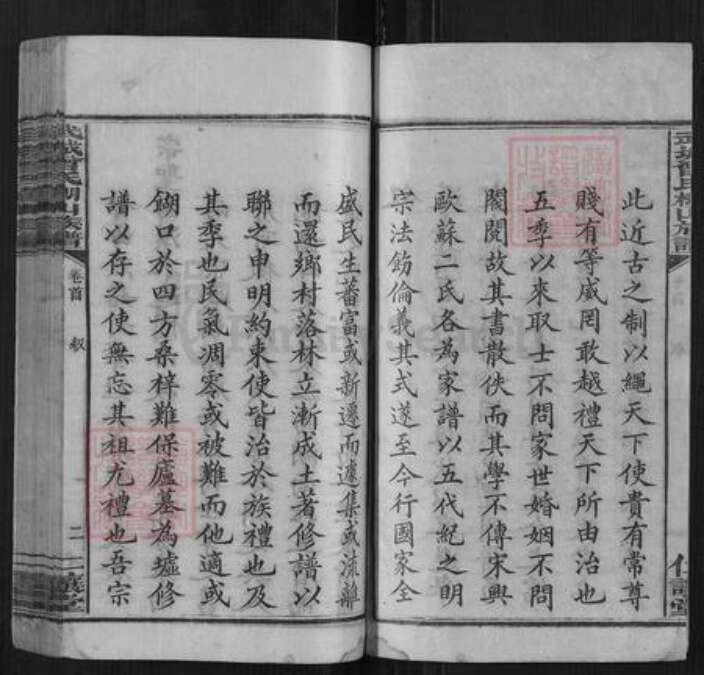 此近古之制以繩天下使貴有常尊
賤有等威罔敢越禮天下所由治也
五季以來取士不問家世婚姻不問
閥閱故其書散佚而其學不傳宋興
歐蘇二氏各為家譜以五代紀之明
宗法飭倫義其式遂至今行國家全
盛民生蕃富或新遷而遽集或流離
而還鄉村落林立漸成土著修譜以
聯之申明約束使皆治於族禮也及
其季也民氣凋零或被難而他適或
餬口於四方桑梓難保廬墓為墟修
譜以存之使無忘其祖尤禮也吾宗
武城曾氏 山族譜
卷首
叙
二